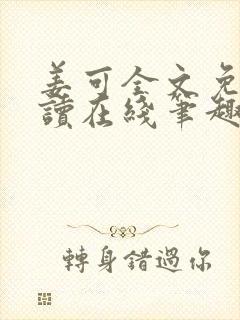 姜可全文免
讀在綫筆趣
轉身錯過你